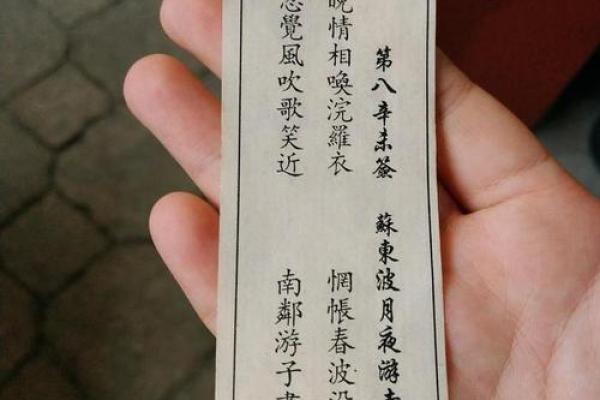 第八辛未簽 蘇東波月夜游
晚情相喚浣羅衣 惆帳春波
覺風吹歌笑近 南鄰游子